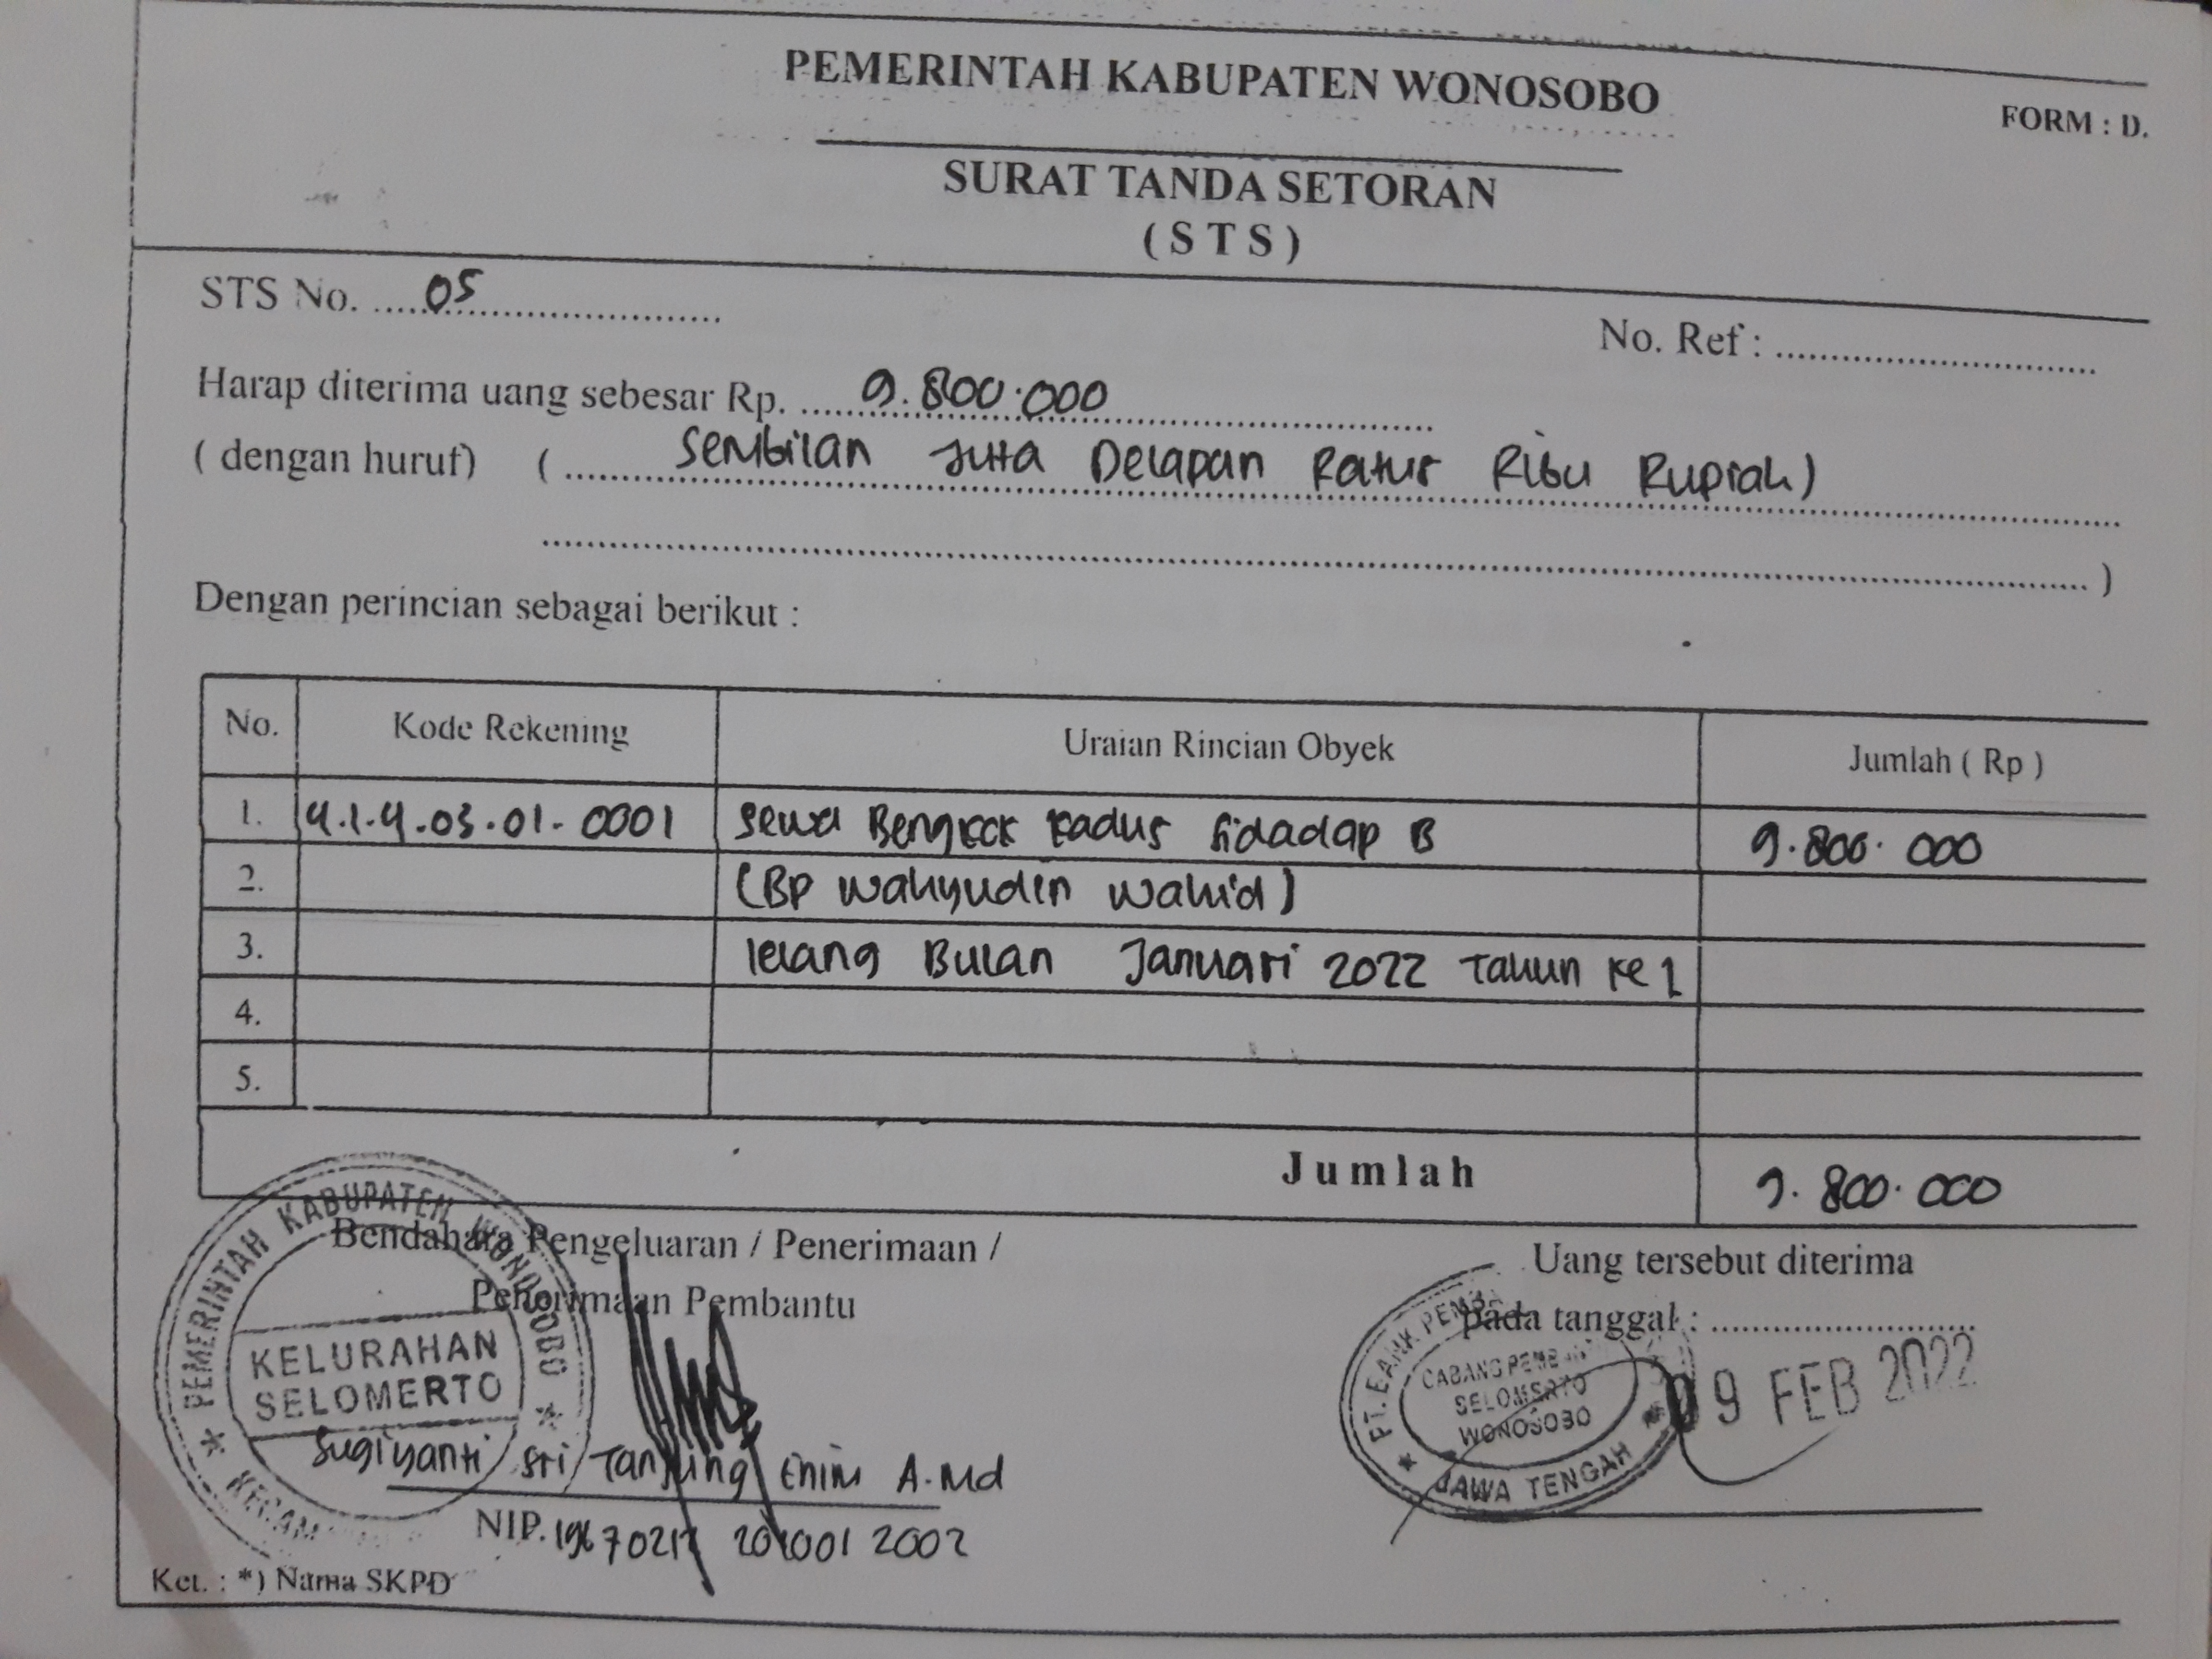 PEMERINTAH KABUPATEN WONOSOBO
FORM : D.
SURAT TANDA SETORAN
( S T S )
STS No. ....05..........................
No. Ref : ................................
Harap diterima uang sebesar Rp. .....9.800.000................................
( dengan huruf) ( ........ Sembilan Juta Delapan Ratus Ribu Rupiah) ........................
................................................................................ )
Dengan perincian sebagai berikut :
No. Kode Rekening Uraian Rincian Obyek Jumlah ( Rp )
1. 4.1.4.03.01.0001 Sewa Bengkok Kadus Sidadap B 9.800.000
2. (Bp Wahyudin Wahid)
3. lelang Bulan Januari 2022 Tahun ke 1
4.
5.
Jumlah 9.800.000
Bendahara Pengeluaran / Penerimaan /
Penerimaan Pembantu
Uang tersebut diterima
pada tanggal : ..........................
09 FEB 2022
PEMERINTAH KABUPATEN WONOSOBO
KELURAHAN
SELOMERTO
PT. BANK PEMBA
CABANG PEMB
SELOMERTO
WONOSOBO
JAWA TENGAH
Sugiyanti Sri Tanjung Enim A.Md
NIP. 2002
Ket. : *) Nama SKPD